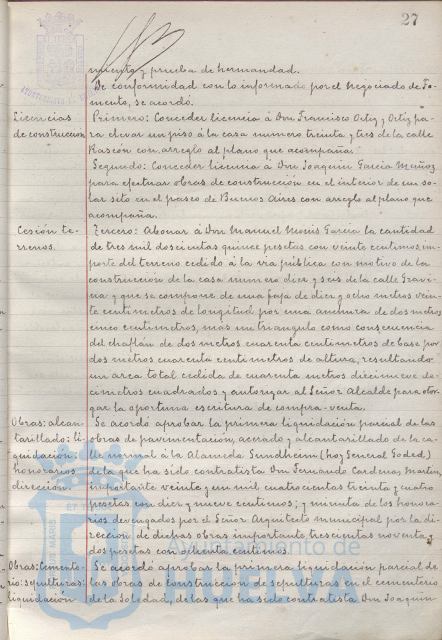 27
miento y prueba de hermandad.
De conformidad con lo informado por el Negociado de Fo-
mento, se acordó.
Licencias
de construccion
Primero: Conceder licencia á Don Francisco Ortiz y Ortiz pa-
ra elevar un piso á la casa numero treinta y tres de la calle
Rascón con arreglo al plano que acompaña.
Segundo: Conceder licencia á Don Joaquin Garcia Muñoz
para efectuar obras de construcción en el interior de un so-
lar sito en el paseo de Buenos Aires con arreglo al plano que
acompaña.
Cesión te-
rrenos.
Tercero: Abonar á Don Manuel Monís Garcia la cantidad
de tres mil doscientas quince pesetas con veinte centimos, im-
porte del terreno cedido á la vía pública con motivo de la
construcción de la casa numero diez y seis de la calle Gravi-
na y que se compone de una faja de diez y ocho metros vein-
te centimetros de longitud por una anchura de dos metros
cinco centimetros, más un triangulo como consecuencia
del chaflán de dos metros cuarenta centimetros de base por
dos metros cuarenta centimetros de altura, resultando
un area total cedida de cuarenta metros diecinueve de-
cimetros cuadrados y autorizar al Señor Alcalde para otor-
gar la oportuna escritura de compra-venta.
Obras: alcan-
tarillado: li-
quidación:
honorarios
dirección.
Se acordó aprobar la primera liquidación parcial de las
obras de pavimentación, acerado y alcantarillado de la ca-
lle normal á la Alameda Sundheim (hoy General Soded.)
de la que ha sido contratista Don Fernando Cardena, Martin,
importante veinte y un mil cuatrocientas treinta y cuatro
pesetas con diez y nueve centimos; y minuta de los honora-
rios devengados por el Señor Arquitecto municipal por la di-
rección de dichas obras importante trescientas noventa y
dos pesetas con ochenta centimos.
Obras: cemente-
rio: sepulturas:
liquidación
Se acordó aprobar la primera liquidación parcial de
las obras de construcción de sepulturas en el cementerio
de la Soledad, de las que ha sido contratista Don Joaquin
Ayuntamiento de
HUELVA